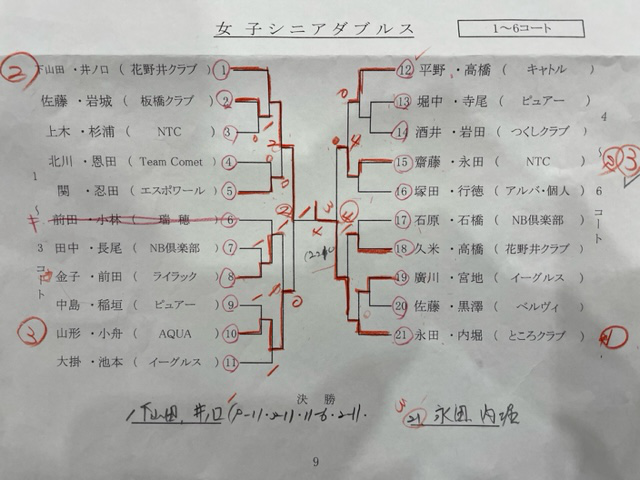 女子シニアダブルス
1～6コート
② 下山田・井ノ口(花野井クラブ) ①
佐藤・岩城(板橋クラブ) ②
上木・杉浦(NTC) ③
北川・恩田(Team Comet) ④
関・忍田(エスポワール) ⑤
前田・小林(瑞穂) ⑥
田中・長尾(NB倶楽部) ⑦
金子・前田(ライラック) ⑧
中島・稲垣(ピュアー) ⑨
③ 山形・小舟(AQUA) ⑩
大掛・池本(イーグルス) ⑪
1～3コート
⑫ 平野・高橋(キャトル)
⑬ 堀中・寺尾(ピュアー)
⑭ 酒井・岩田(つくしクラブ)
⑮ 齋藤・永田(NTC) ③
⑯ 塚田・行徳(アルバ・個人)
⑰ 石原・石橋(NB倶楽部)
⑱ 久米・高橋(花野井クラブ)
⑲ 廣川・宮地(イーグルス)
⑳ 佐藤・黒澤(ベルヴィ)
㉑ 永田・内堀(ところクラブ) ①
4～6コート
決勝
1 下山田、井ノ口
3 ㉑ 永田、内堀
9